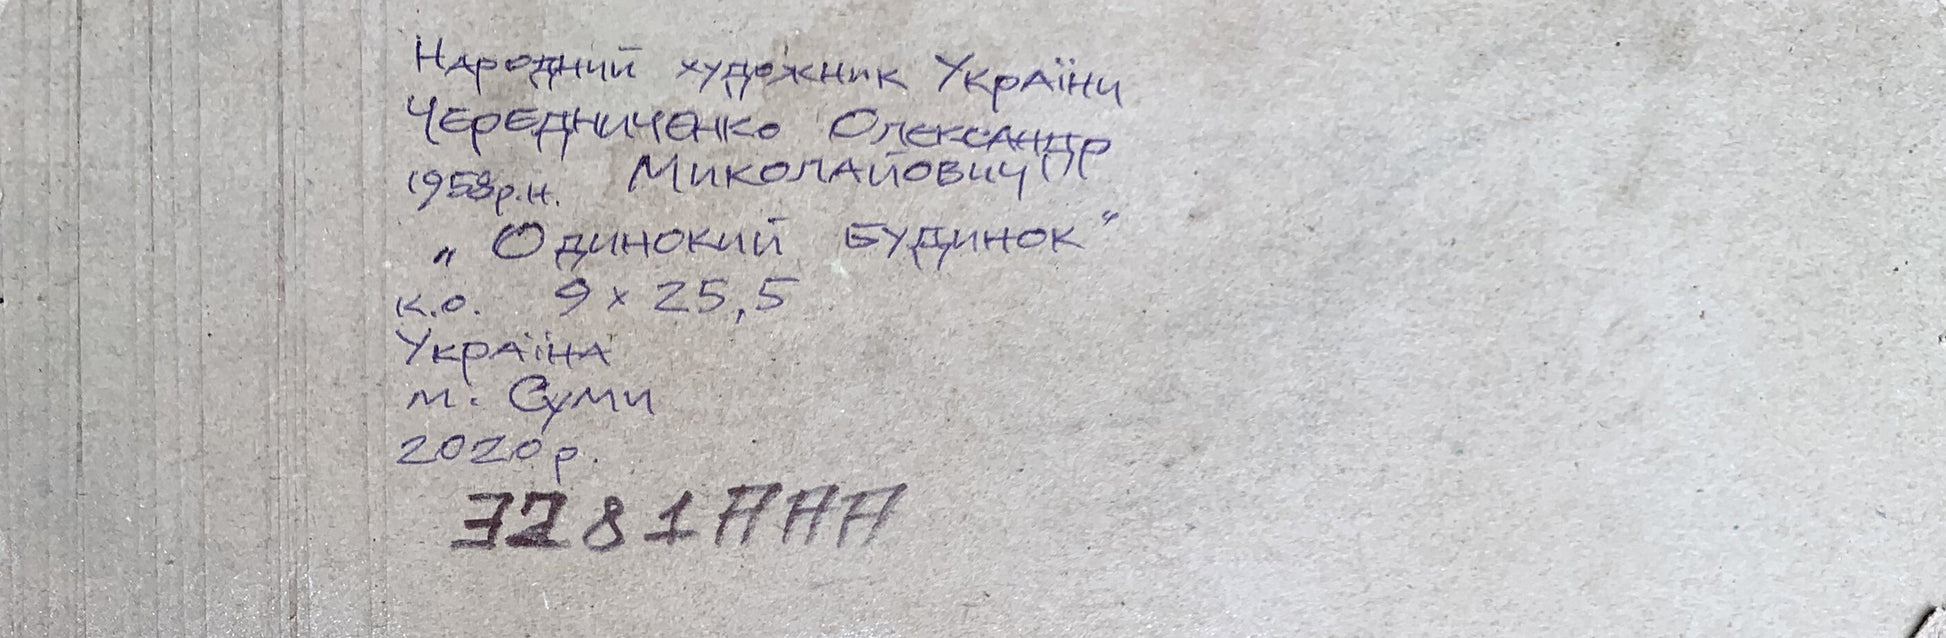 Народний художник України
Чередниченко Олександр
1958р.н. Миколайович
„Одинокий будинок“
к.о. 9 x 25,5
Україна
м. Суми
2020р.
3281ААА